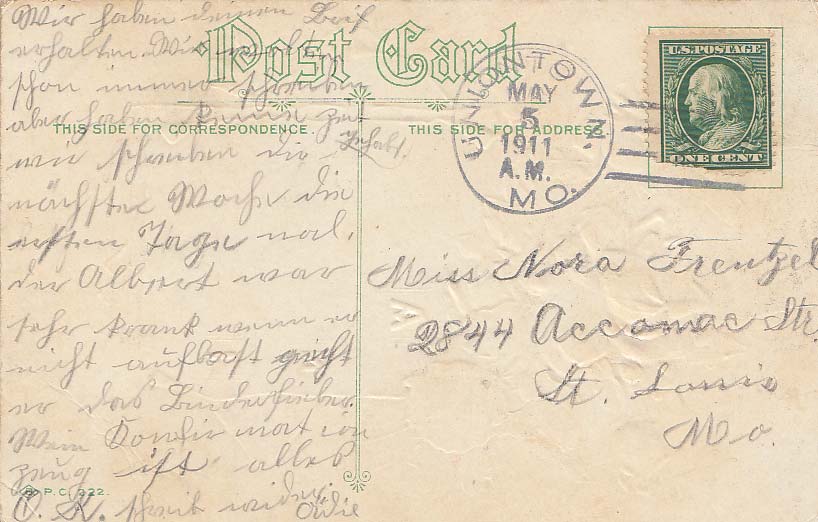 Wir haben deinen Brif
erhalten. Wir
schon immer schreiben
aber haben keine Zeit
gehabt.
wir schreiben die
nächste Woche die
ersten Tage mal.
der Albert war
sehr krank wenn er
nicht aufbast gricht
er das Binderfieber.
Mein Confirmation
zeug ist alles
O.K. schreib wider.
Post Card
THIS SIDE FOR CORRESPONDENCE.
THIS SIDE FOR ADDRESS.
P.C. 322.
UNIONTOWN.
MAY
5
1911
A.M.
MO.
U.S. POSTAGE
ONE CENT
Miss Nora Frentzel
2844 Accomac Str.
St. Louis
Mo.